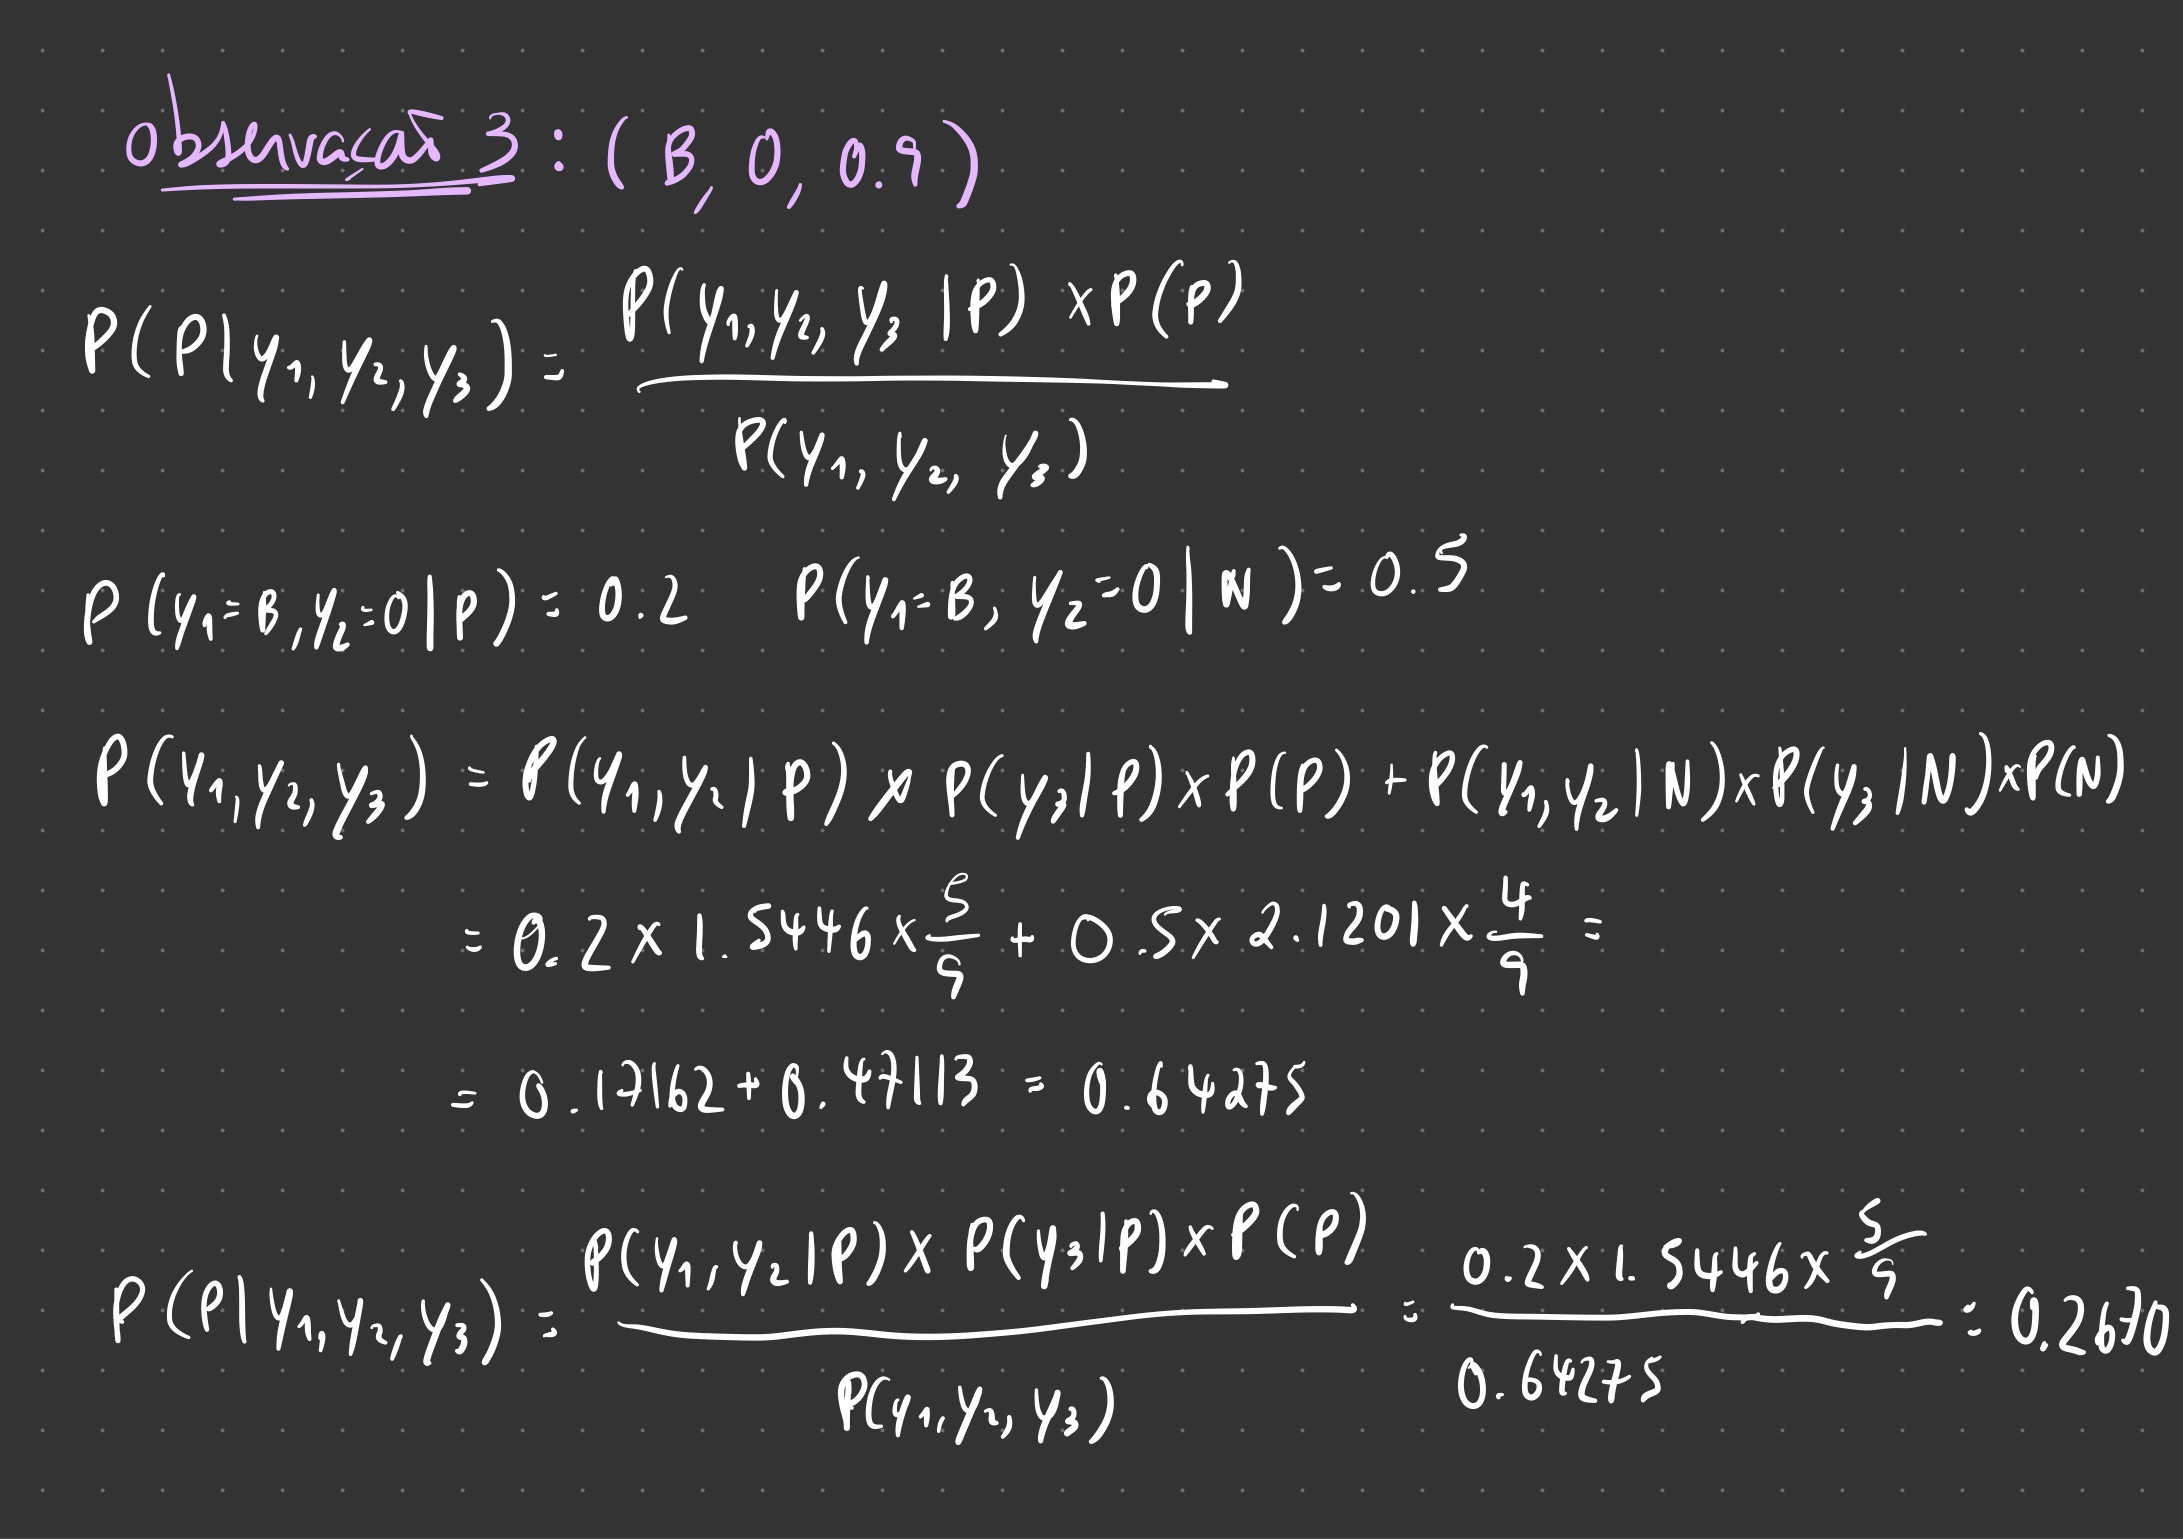 observação 3 : (B, 0, 0.9)
P(P|y₁, y₂, y₃) = P(y₁, y₂, y₃ |P) × P(P) / P(y₁, y₂, y₃)
P(y₁=B, y₂=0|P) = 0.2 P(y₁=B, y₂=0|N) = 0.5
P(y₁, y₂, y₃) = P(y₁, y₂|P) × P(y₃|P) × P(P) + P(y₁, y₂|N) × P(y₃|N) × P(N)
= 0.2 × 1.5446 × 5/9 + 0.5 × 2.1201 × 4/9 =
= 0.17162 + 0.47113 = 0.64275
P(P|y₁, y₂, y₃) = P(y₁, y₂|P) × P(y₃|P) × P(P) / P(y₁, y₂, y₃) = 0.2 × 1.54446 × 5/9 / 0.64275 = 0.2670